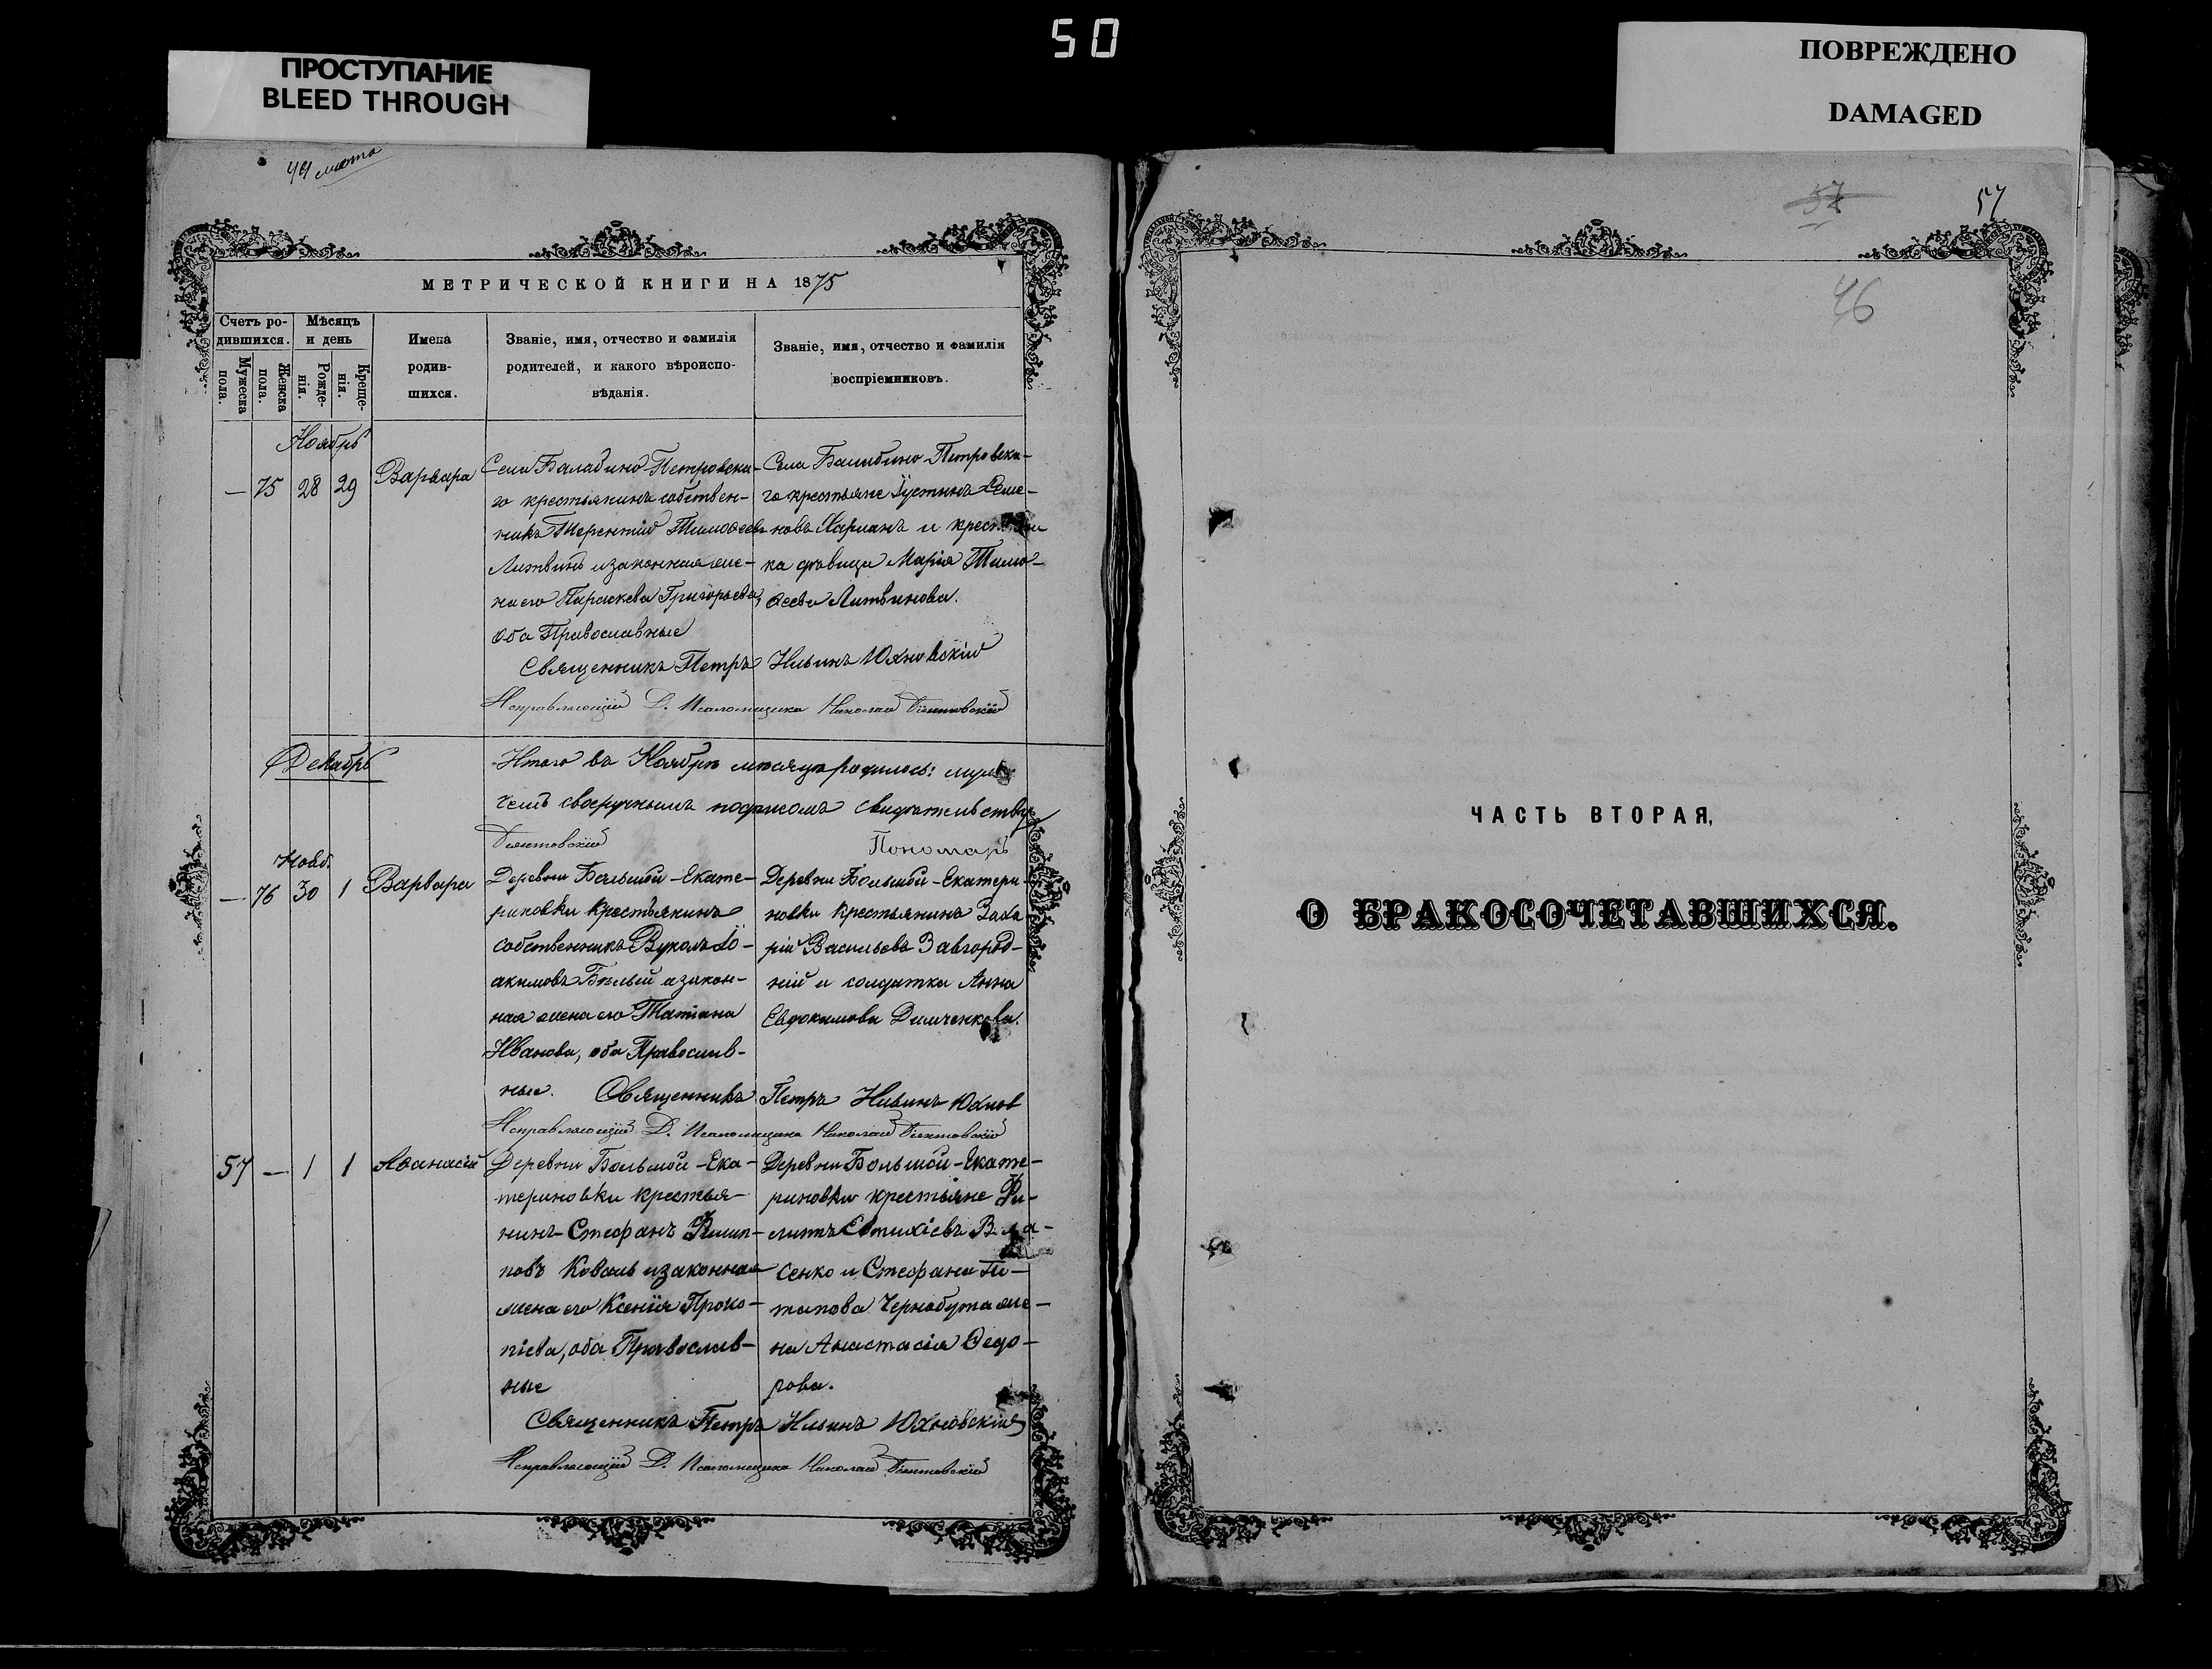 50
ПРОСТУПАНИЕ
BLEED THROUGH
ПОВРЕЖДЕНО
DAMAGED
МЕТРИЧЕСКОЙ КНИГИ НА 1875
Счетъ ро-
дившихся.
Мужеска
пола.
Женска
пола.
Мѣсяцъ
и день
Рожде-
нія.
Креще-
нія.
Имена
родив-
шихся.
Званіе, имя, отчество и фамилія
родителей, и какого вѣроиспо-
вѣданія.
Званіе, имя, отчество и фамилія
воспріемниковъ.
Ноябрь
— 75 28 29 Варвара
Села Балабино-Петровска-
го крестьянинъ собствен-
никъ Терентій Тимофеевъ
Литвинъ и законная же-
на его Параскева Григорьева,
оба Православные
Села Балабино-Петровска-
го крестьяне Іустинъ Семе-
новъ Харланъ и
ка дѣвица Марія Тимо-
ѳеева Литвинова.
Священникъ Петръ Ильинъ Юхновскій
Исправляющій Д. Псаломщика Николай
Декабрь
Итого въ Ноябрѣ мѣсяцѣ родилось:
чемъ своеручнымъ подписомъ
Пономарь
Нояб.
— 76 30 1 Варвара
Деревни Большой-Екате-
риновки крестьянинъ
собственникъ Вуколъ Іо-
акимовъ Бѣлый и закон-
ная жена его Татіана
Иванова, оба Православ-
ные.
Деревни Большой-Екатери-
новки крестьянинъ Заха
рій Васильевъ Завгород-
ній и солдатка Анна
Евдокимова Демченкова.
Священникъ Петръ Ильинъ Юхнов
Исправляющій Д. Псаломщика Николай
57 — 1 1 Аѳанасій
Деревни Большой-Ека-
териновки крестья-
нинъ Стефанъ Филип-
повъ Коваль и законная
жена его Ксенія Проко-
піева, оба Православ-
ные
Деревни Большой-Екате-
риновки крестьяне Фи-
липъ Евтихіевъ
сенко и Стефана По-
тапова Чернобука же-
на Анастасія Ѳедо-
рова.
Священникъ Петръ Ильинъ Юхновскій
Исправляющій Д. Псаломщика Николай
57
46
ЧАСТЬ ВТОРАЯ,
О БРАКОСОЧЕТАВШИХСЯ.